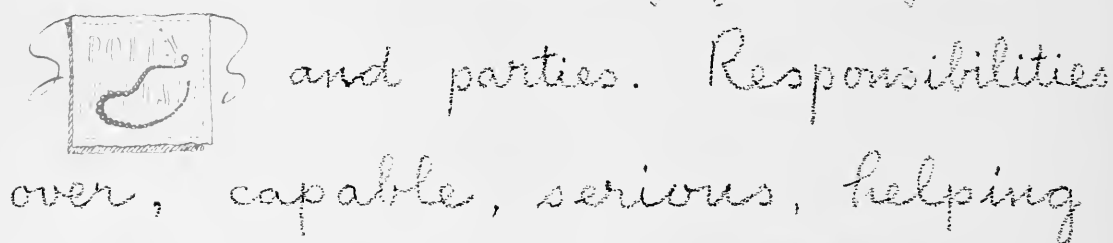 and parties. Responsibilities
over, capable, serious, helping